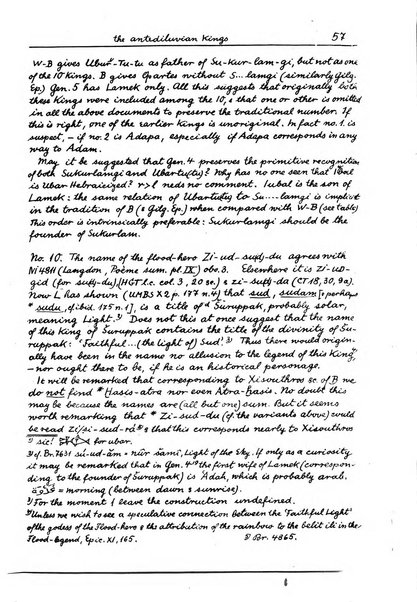 the antediluvian kings 57
W-B gives Ubur-Tu-tu as father of Su-kur-lam-gi, but not as one
of the 10 kings. B gives Opartes without S...lamgi (similarly Gilg.
Ep.) Gen. 5 has Lamek only. All this suggests that originally both
these kings were included among the 10, & that one or other is omitted
in all the above documents to preserve the traditional number. If
this is right, one of the earlier kings is unoriginal. In fact no. 1. is
suspect, – if no. 2 is Adapa, especially if Adapa corresponds in any
way to Adam.
May it be suggested that Gen. 4 preserves the primitive recognition
of both Sukurlamgi and Ubartuttu? Why has no one seen that
is Ubar Hebraicized? r>l neds no comment. Iubal is the son of
Lamek: the same relation of Ubartutu to Su----lamgi is implicit
in the tradition of B (& Gilg. Ep.) when compared with W-B (see table)
This order is intrinsically preferable: Sukurlamgi should be the
founder of Sukurlam.
No. 10. The name of the flood-hero Zi-ud-sudu-du agrees with
Ni 4811 (Langdon, Poème sum. pl. IX) obv. 3. Elsewhere it is ZI-UD-
gid (for sud-du), (HGT l.c. col. 3, 20 sr.) & zi-sud-da (CT 18, 30, 9a).
Now L has shown (UMBS X2, p. 177 n. 4) that sud, sudam [& perhaps
* sudu, ibid. 175 n. 1], is a title of Šuruppak, probably solar,
meaning Light. Does not this at once suggest that the name
of this king of Šuruppak contains the title of the divinity of Šu-
ruppak: 'Faithful ... (the light of) Sud'. Thus there would origin-
ally have been in the name no allusion to the legend of this king
– nor ought there to be, if he is an historical personage.
It will be remarked that corresponding to Xisouthros sc. of B we
do not find * Hasis-atra nor even Atra-hasis. No doubt this
may be because the names are (all but one) sum. But it seems
worth remarking that * Zi-sud-du (of the variants above) could
be read Zi/si-sud-rá & that this corresponds nearly to Xisouthros
1) sic! for ubar.
2) cf. Br. 7631 sú-ud-ám = nūr šamī, Light of the Sky. If only as a curiosity
it may be remarked that in Gen. 4 the first wife of Lamek (correspon-
ding to the founder of Šuruppak) is Adah, which is probably arab.
= morning (between dawn & sunrise).
3) For the moment I leave the construction undefined.
4) Unless we wish to see a speculative connection between the 'Faithful Light'
of the goddess of the Flood-hero & the attribution of the rainbow to the belit ili in the
Flood-legend, Epic. XI, 165. 5) Br. 4865.